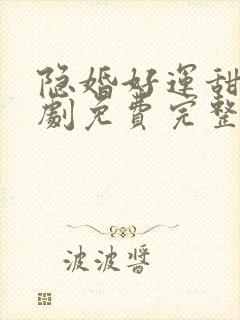 隐婚好運甜
劇免費完整
波波醬